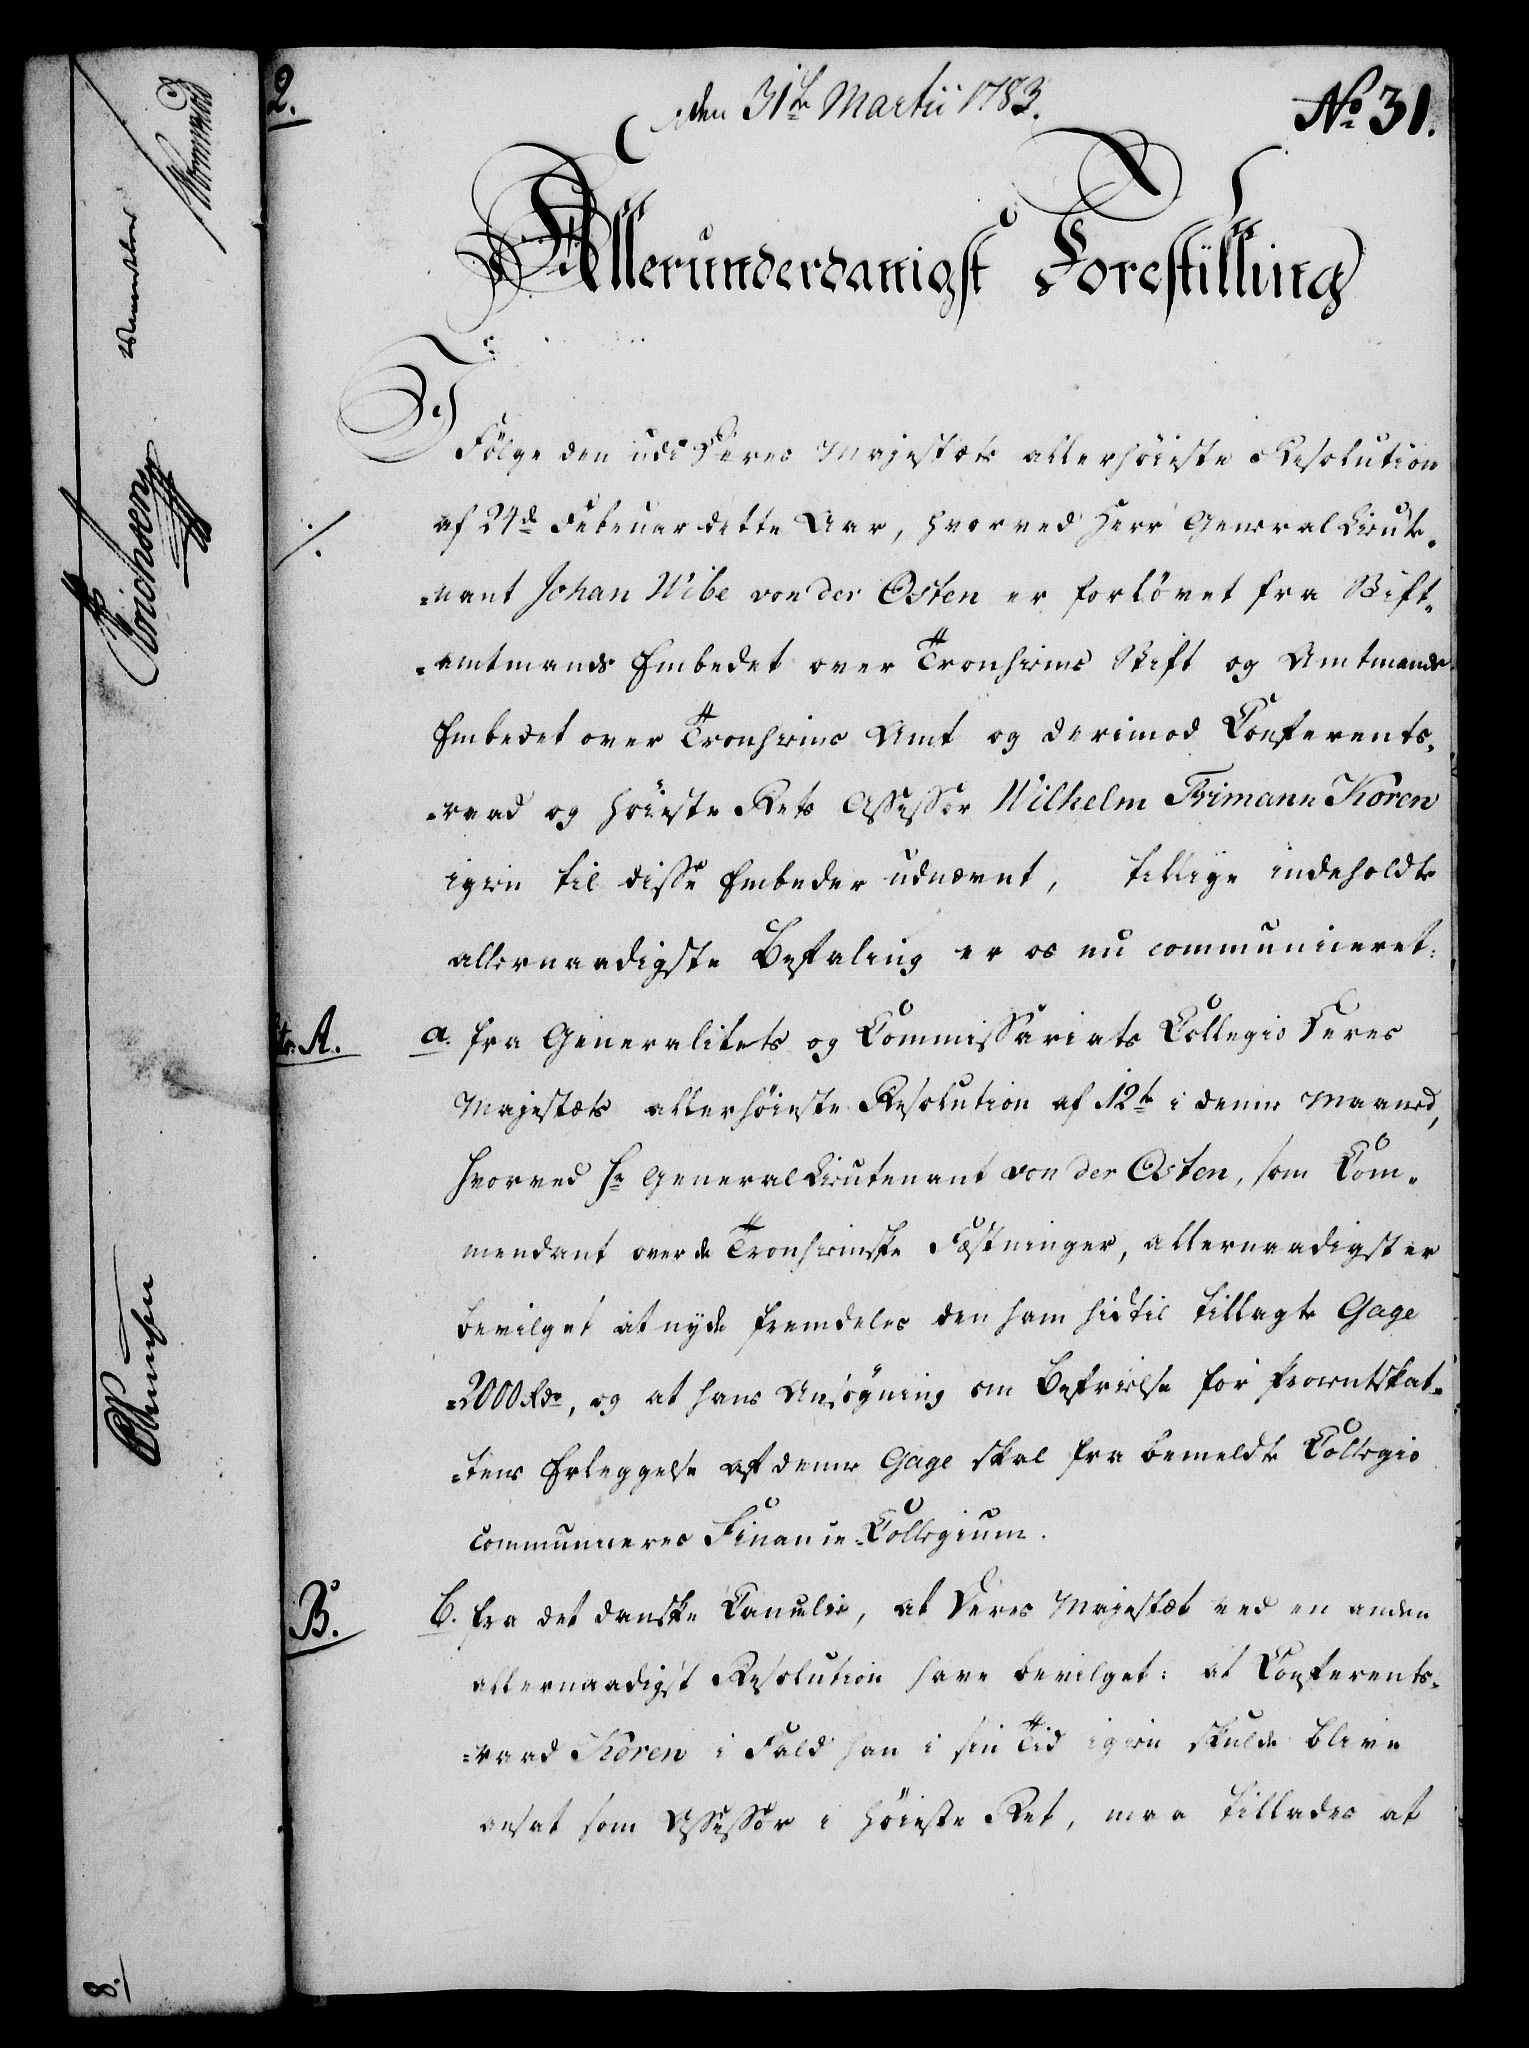 2.
den 31te Martii 1783.
No 31.
Allerunderdanigst Forestilling
I
Følge den udi Deres Majestæts allerhöieste Resolution
af 24de Februar dette Aar, hvorved Herr General Lieute-
-nant Johan Wibe von der Osten er forlövet fra Stift-
-amtmands Embedet over Tronhiems Stift og Amtmands
Embedet over Tronhiems Amt og derimod Conferents-
-raad og Höieste Rets Assessor Wilhelm Frimann Koren
igien til disse Embeder udnævnt, tillige indeholdte
allernaadigste Befaling er os nu communiceret:
Ltr. A.
a. fra Generalitets og Commissariats Collegio Deres
Majestæts allerhöieste Resolution af 12te i denne Maaned,
hvorved Hr General Lieutenant von der Osten, som Com-
mendant over de Tronhiemske Fæstninger, allernaadigst er
bevilget at nyde fremdeles den ham hidtil tillagte Gage
-2000 Rdr, og at hans Ansögning om Befrielse for Procentskat-
-tens Erleggelse af denne Gage skal fra bemeldte Collegio
communiceres Finance-Collegium.
B.
b. fra det danske Cancelie, at Deres Majestæt ved en anden
allernaadigst Resolution have bevilget: at Conferents-
-raad Koren i Fald han i sin Tid igien skulde blive
ansat som Assessor i Höieste Ret, maa tillades at
Wormskiold
Erichsen
8.